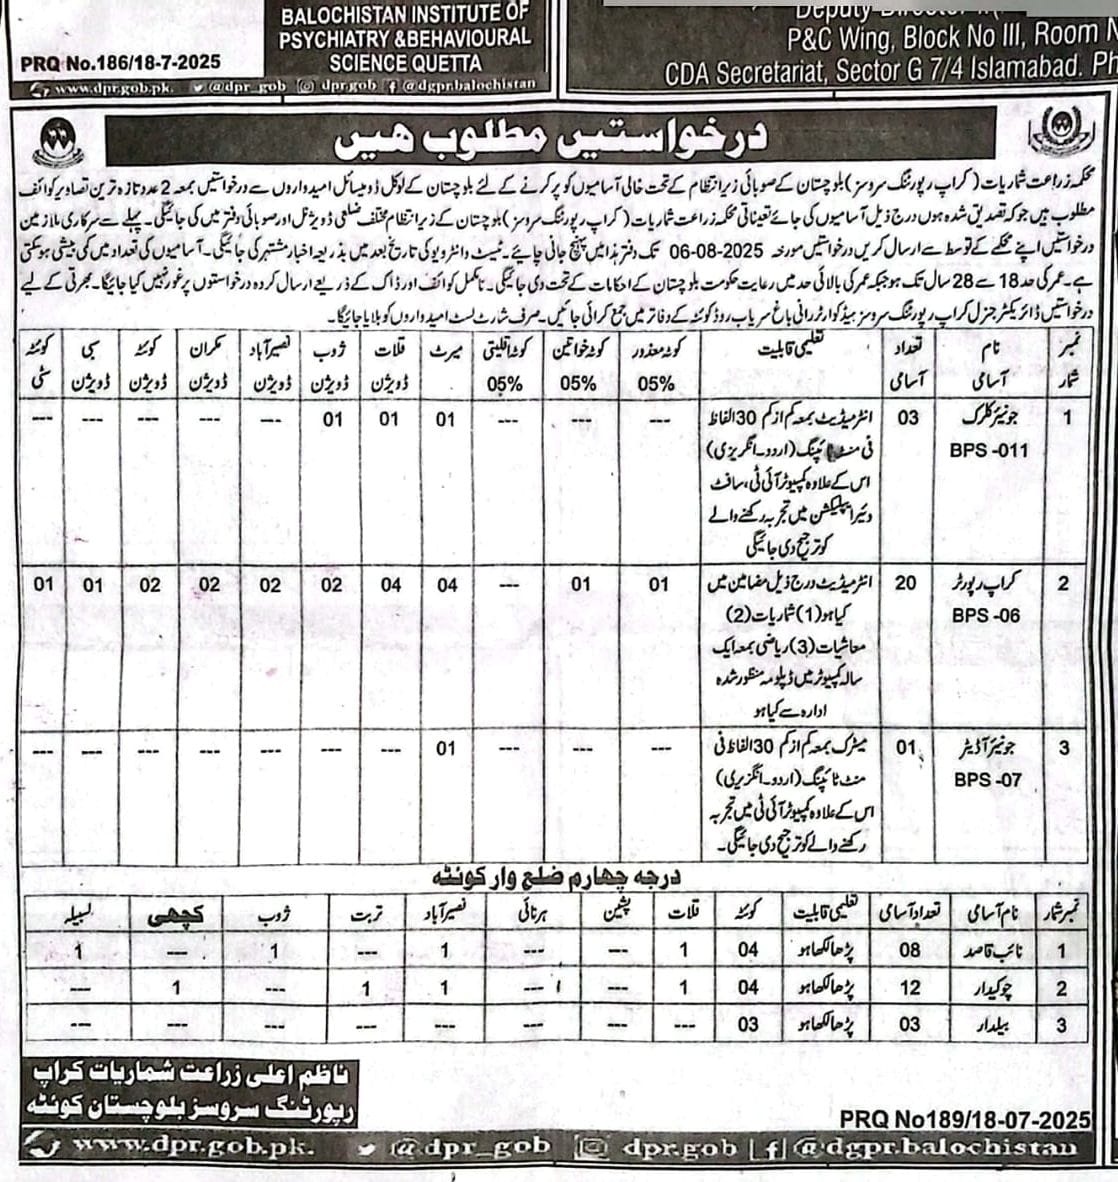 BALOCHISTAN INSTITUTE OF
PSYCHIATRY &BEHAVIOURAL
SCIENCE QUETTA
PRQ No.186/18-7-2025
www.dpr.gob.pk. @dpr_gob dpr.gob @dgpr.balochistan
Deputy Director
P&C Wing, Block No III, Room
CDA Secretariat, Sector G 7/4 Islamabad. Ph
درخواستیں مطلوب ھیں
محکمہ زراعت شماریات (کراپ رپورٹنگ سروسز) بلوچستان کے صوبائی زیر انتظام کے تحت خالی آسامیوں کو پر کرنے کے لئے بلوچستان کے لوکل ڈومیسائل امیدواروں سے درخواستیں بمعہ 2 عدد تازہ ترین تصاویر کوائف
مطلوب ہیں جو کہ تصدیق شدہ ہوں درج ذیل آسامیوں کی جائے تعیناتی محکمہ زراعت شماریات (کراپ رپورٹنگ سروسز) بلوچستان کے زیر انتظام مختلف ضلعی ڈویژنل اور صوبائی دفتر میں کی جائیگی۔ پہلے سے سرکاری ملازمین
درخواستیں اپنے محکمے کے توسط سے ارسال کریں درخواستیں مورخہ 06-08-2025 تک دفتر ہذا میں پہنچ جانی چاہیے۔ ٹیسٹ و انٹرویو کی تاریخ بعد میں بذریعہ اخبار مشتہر کی جائیگی۔ آسامیوں کی تعداد میں کمی بیشی ہو سکتی
ہے۔ عمر کی حد 18 سے 28 سال تک ہو جبکہ عمر کی بالائی حد میں رعایت حکومت بلوچستان کے احکامات کے تحت دی جائیگی۔ نامکمل کوائف اور ڈاک کے ذریعے ارسال کردہ درخواستوں پر غور نہیں کیا جائیگا۔ بھرتی کے لیے
درخواستیں ڈائریکٹر جنرل کراپ رپورٹنگ سروسز ہیڈ کوارٹر رانی باغ سریاب روڈ کوئٹہ کے دفاتر میں جمع کرائی جائیں۔ صرف شارٹ لسٹ امیدواروں کو بلایا جائیگا۔
نمبر شمار نام آسامی تعداد آسامی تعلیمی قابلیت کوٹہ معذور 05% کوٹہ خواتین 05% کوٹہ اقلیتی 05% میرٹ قلات ڈویژن ژوب ڈویژن نصیر آباد ڈویژن مکران ڈویژن کوئٹہ ڈویژن سبی ڈویژن کوئٹہ سٹی
1 جونیئر کلرک 03 انٹرمیڈیٹ بمعہ کم از کم 30 الفاظ --- --- --- 01 01 01 --- --- --- --- ---
BPS -011 فی منٹ ٹائپنگ (اردو۔ انگریزی)
اس کے علاوہ کمپیوٹر آئی ٹی، سافٹ
وئیر اپلیکیشن میں تجربہ رکھنے والے
کو ترجیح دی جائیگی
2 کراپ رپورٹر 20 انٹرمیڈیٹ درج ذیل مضامین میں 01 01 --- 04 04 02 02 02 02 01 01
BPS -06 کیا ہو (1) شماریات (2)
معاشیات (3) ریاضی بمعہ ایک
سالہ کمپیوٹر میں ڈپلومہ منظور شدہ
ادارہ سے کیا ہو
3 جونیئر آڈیٹر 01 میٹرک بمعہ کم از کم 30 الفاظ فی --- --- --- 01 --- --- --- --- --- --- ---
BPS -07 منٹ ٹائپنگ (اردو۔ انگریزی)
اس کے علاوہ کمپیوٹر آئی ٹی میں تجربہ
رکھنے والے کو ترجیح دی جائیگی۔
درجہ چہارم ضلع وار کوئٹہ
نمبر شمار نام آسامی تعداد آسامی تعلیمی قابلیت کوئٹہ قلات پشین ہرنائی نصیر آباد تربت ژوب کچھی لسبیلہ
1 نائب قاصد 08 پڑھا لکھا ہو 04 1 --- --- 1 --- 1 --- 1
2 چوکیدار 12 پڑھا لکھا ہو 04 1 --- --- 1 1 --- 1 ---
3 بیلدار 03 پڑھا لکھا ہو 03 --- --- --- --- --- --- --- ---
ناظم اعلی زراعت شماریات کراپ
رپورٹنگ سروسز بلوچستان کوئٹہ
PRQ No189/18-07-2025
www.dpr.gob.pk. @dpr_gob dpr.gob | @dgpr.balochistan